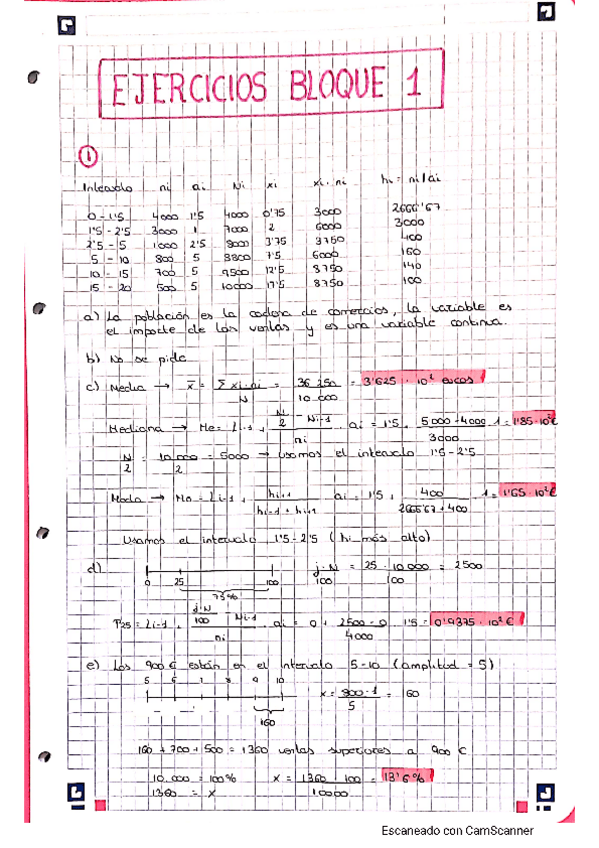 EJERCICIOS BLOQUE 1
1
Intervalo ni ai Ni xi xi·ni hi = ni/ai
0 - 1'5 4000 1'5 4000 0'75 3000 2666'67
1'5 - 2'5 3000 1 7000 2 6000 3000
2'5 - 5 1000 2'5 8000 3'75 3750 400
5 - 10 800 5 8800 7'5 6000 160
10 - 15 700 5 9500 12'5 8750 140
15 - 20 500 5 10000 17'5 8750 100
a) La población es la cadena de comercios, la variable es
el importe de las ventas y es una variable continua.
b) No se pide
c) Media → x̄ = Σ xi·ni / N = 36 250 / 10 000 = 3'625 · 10² euros
Mediana → Me = Li-1 + (N/2 - Ni-1) / ni · ai = 1'5 + (5000 - 4000) / 3000 · 1 = 1'85 · 10² €
N/2 = 10.000/2 = 5000 → usamos el intervalo 1'5 - 2'5
Moda → Mo = Li-1 + hi+1 / (hi-1 + hi+1) ai = 1'5 + 400 / (2666'67 + 400) 1 = 1'65 · 10² €
Usamos el intervalo 1'5 - 2'5 (hi más alto)
d) 0 25 100 j·N/100 = 25 · 10.000 / 100 = 2500
75%
P25 = Li-1 + (j·N/100 - Ni-1) / ni · ai = 0 + (2500 - 0) / 4000 · 1'5 = 0'9375 · 10² €
e) Los 900 € están en el intervalo 5-10 (amplitud = 5)
5 6 7 8 9 10 x = 800 · 1 / 5 = 160
160
160 + 700 + 500 = 1360 ventas superiores a 900 €
10.000 = 100% x = 1360 · 100 / 10000 = 13'6%
1360 = x
Escaneado con CamScanner